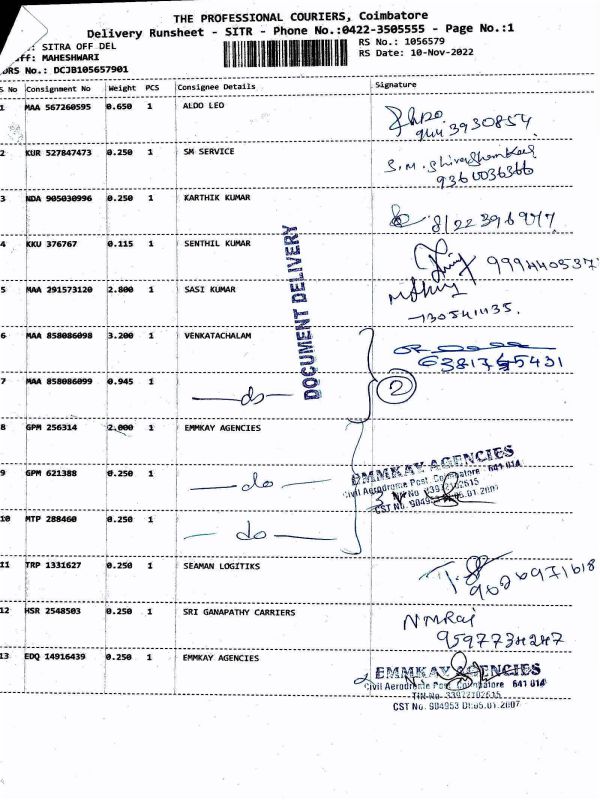 THE PROFESSIONAL COURIERS, Coimbatore
Delivery Runsheet - SITR - Phone No.:0422-3505555 - Page No.:1
: SITRA OFF DEL
RS No.: 1056579
ff: MAHESHWARI
RS Date: 10-Nov-2022
DRS No.: DCJB105657901
S No Consignment No Weight PCS Consignee Details Signature
1 MAA 567260595 0.650 1 ALDO LEO
944 3930854
2 KUR 527847473 0.250 1 SM SERVICE
9360036366
3 NDA 905030996 0.250 1 KARTHIK KUMAR
4 KKU 376767 0.115 1 SENTHIL KUMAR
9994405373
5 MAA 291573120 2.800 1 SASI KUMAR
DOCUMENT DELIVERY
6 MAA 858086098 3.200 1 VENKATACHALAM
7 MAA 858086099 0.945 1 —do— 2
8 GPM 256314 2.000 1 EMMKAY AGENCIES
9 GPM 621388 0.250 1 —do—
EMMKAY AGENCIES
Civil Aerodrome Post, Coimbatore - 641 014
10 MTP 288460 0.250 1 — do —
CST No. 904953 Dt.05.01.2007
11 TRP 1331627 0.250 1 SEAMAN LOGITIKS
9626971618
12 HSR 2548503 0.250 1 SRI GANAPATHY CARRIERS
NMRaj
9597734247
13 EDQ 14916439 0.250 1 EMMKAY AGENCIES
EMMKAY AGENCIES
Civil Aerodrome Post, Coimbatore 641 014
CST No. 904953 Dt.05.01.2007